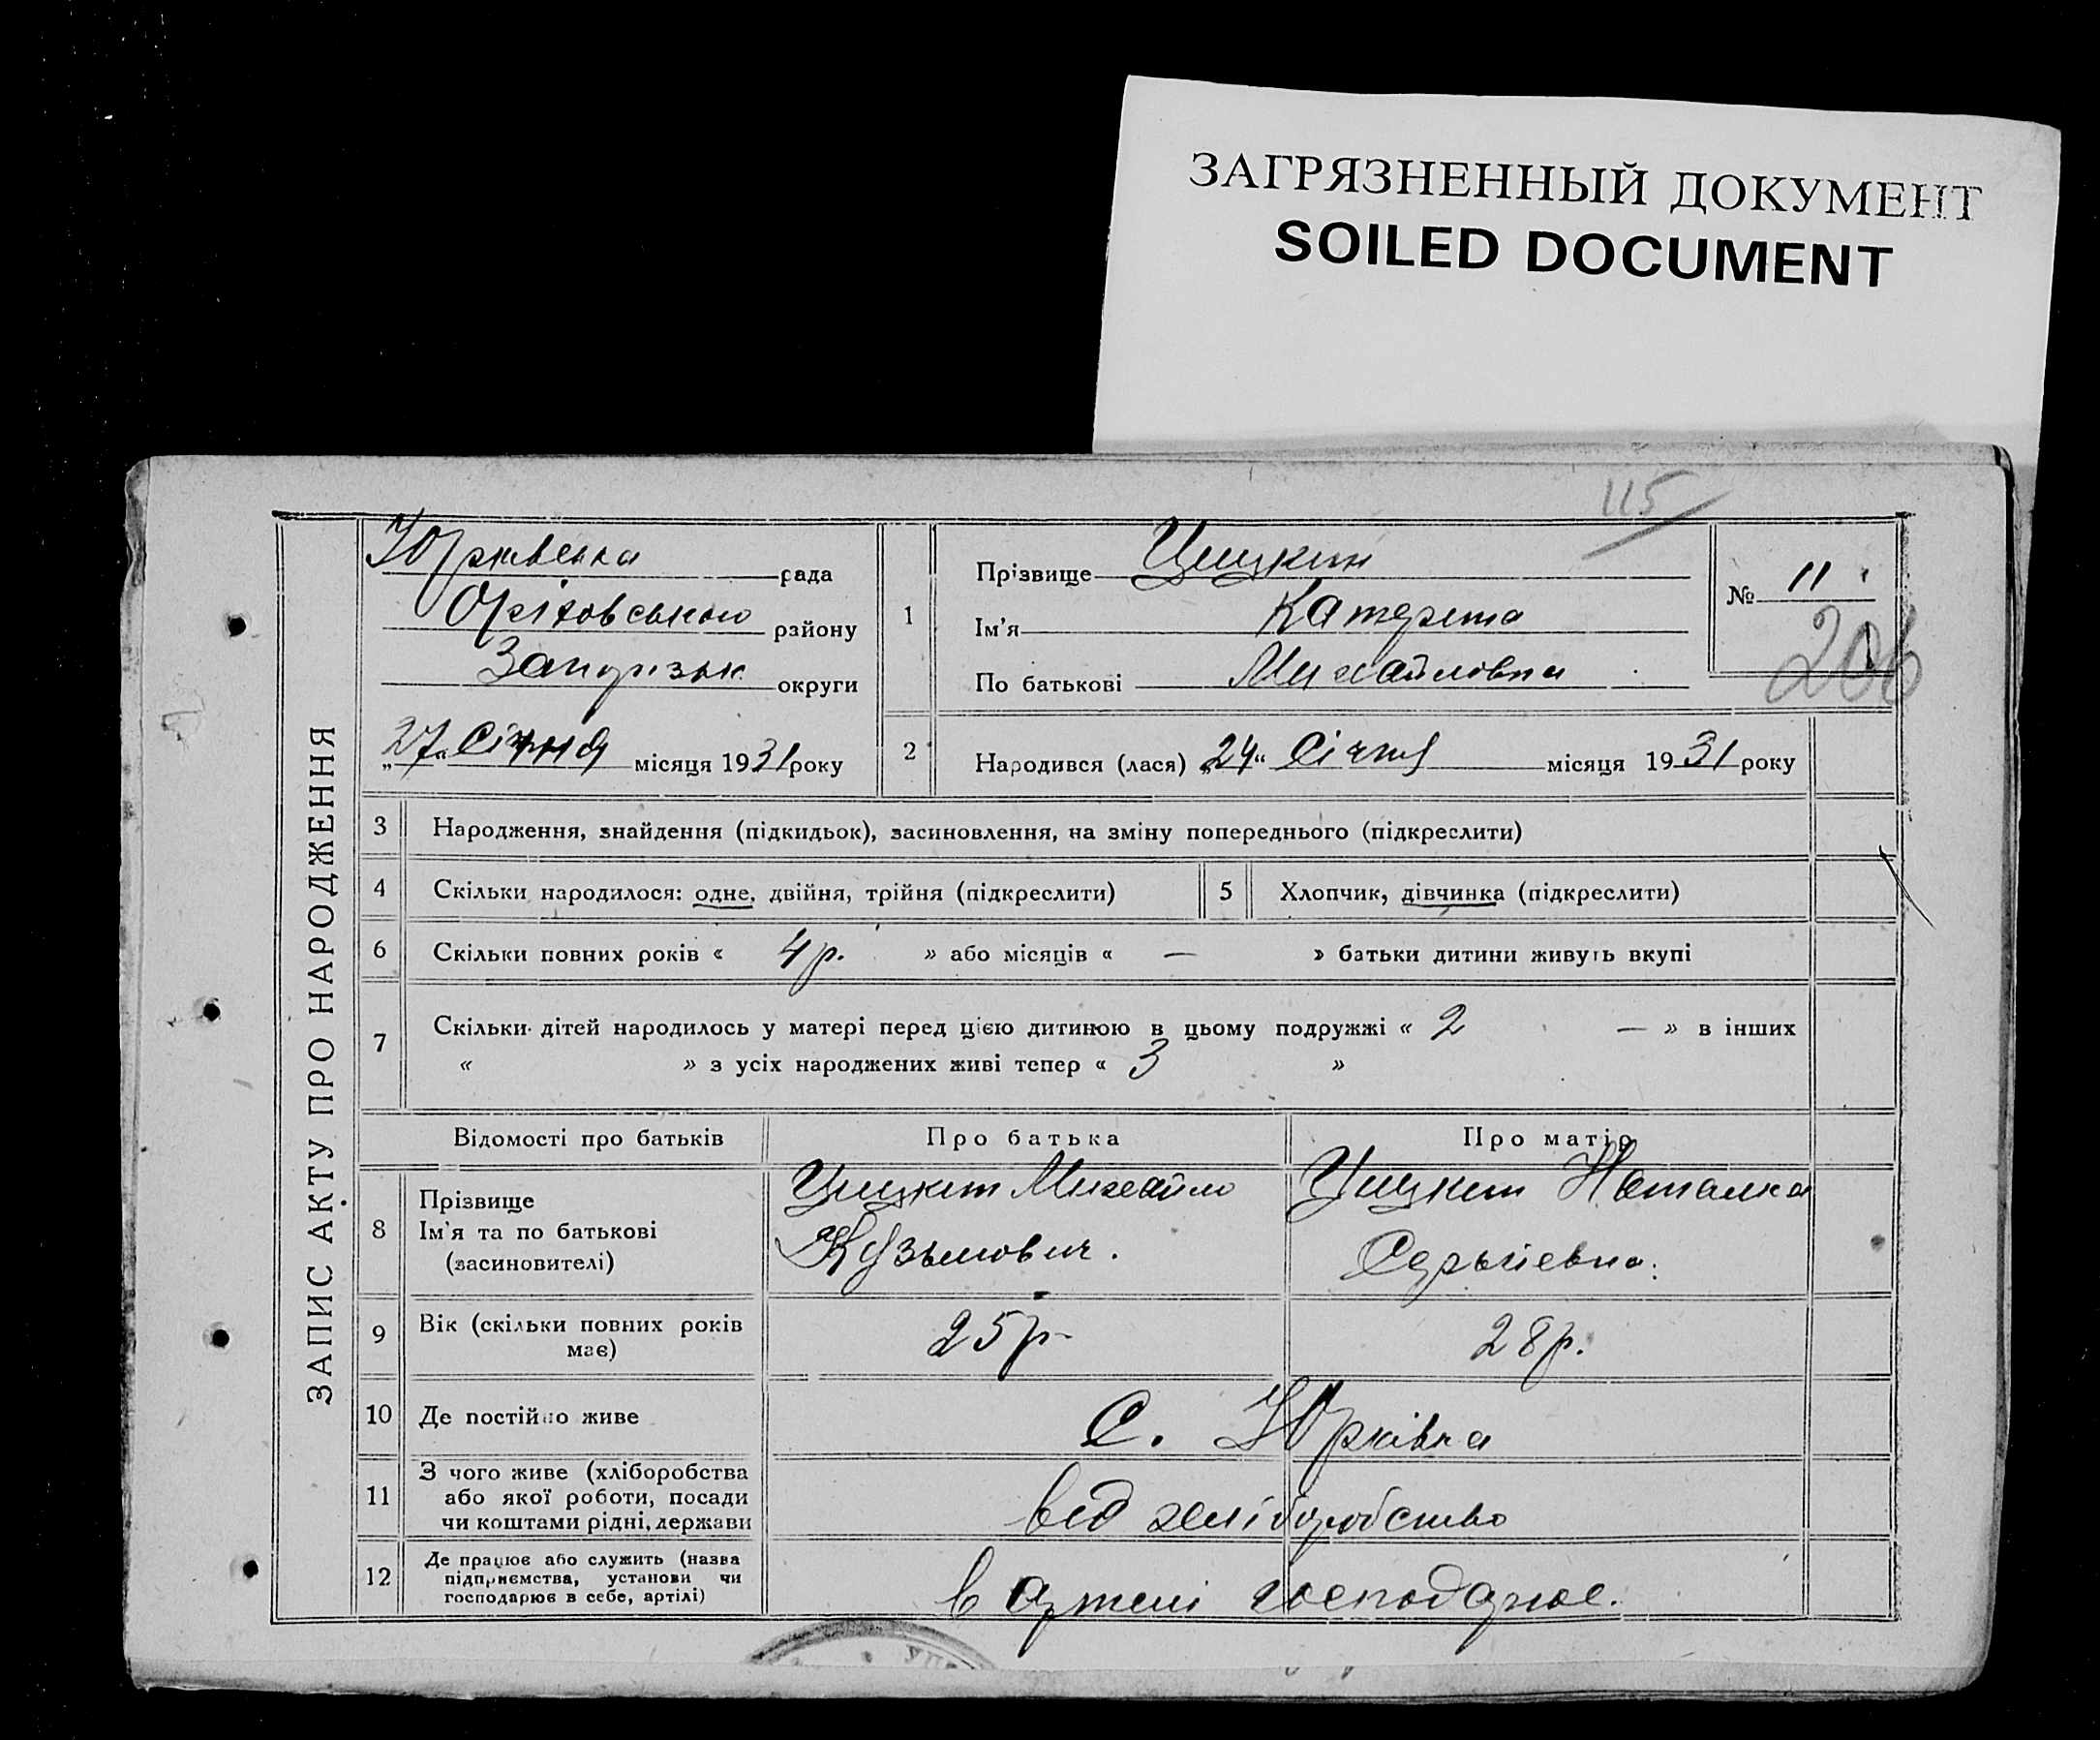 ЗАГРЯЗНЕННЫЙ ДОКУМЕНТ
SOILED DOCUMENT
115
ЗАПИС АКТУ ПРО НАРОДЖЕННЯ
Юрківська рада
Оріховського району
Запорізьк округи
„27“ Січня місяця 1931 року
1
Прізвище Цицкин
Ім'я Катерина
По батькові Михайловна
№ 11
206
2
Народився (лася) „24“ Січня місяця 1931 року
3 Народження, знайдення (підкидьок), засиновлення, на зміну попереднього (підкреслити)
4 Скільки народилося: одне, двійня, трійня (підкреслити)
5 Хлопчик, дівчинка (підкреслити)
6 Скільки повних років « 4 р. » або місяців « — » батьки дитини живуть вкупі
7 Скільки дітей народилось у матері перед цією дитиною в цьому подружжі « 2 — » в інших
« » з усіх народжених живі тепер « 3 »
Відомості про батьків Про батька Про матір
8 Прізвище
Ім'я та по батькові
(засиновителі)
Цицкин Михайло
Кузьмович.
Цицкин Наталка
Сергіевна.
9 Вік (скільки повних років
має)
25 р.
28 р.
10 Де постійно живе
С. Юрківка
11 З чого живе (хліборобства
або якої роботи, посади
чи коштами рідні, держави
від хліборобство
12 Де працює або служить (назва
підприємства, установи чи
господарює в себе, артілі)
в артелі господарює.